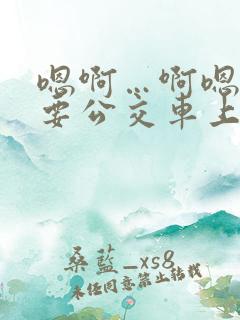 嗯啊…啊嗯
要公交车上
桑蓝_xs8
未经同意禁止转载